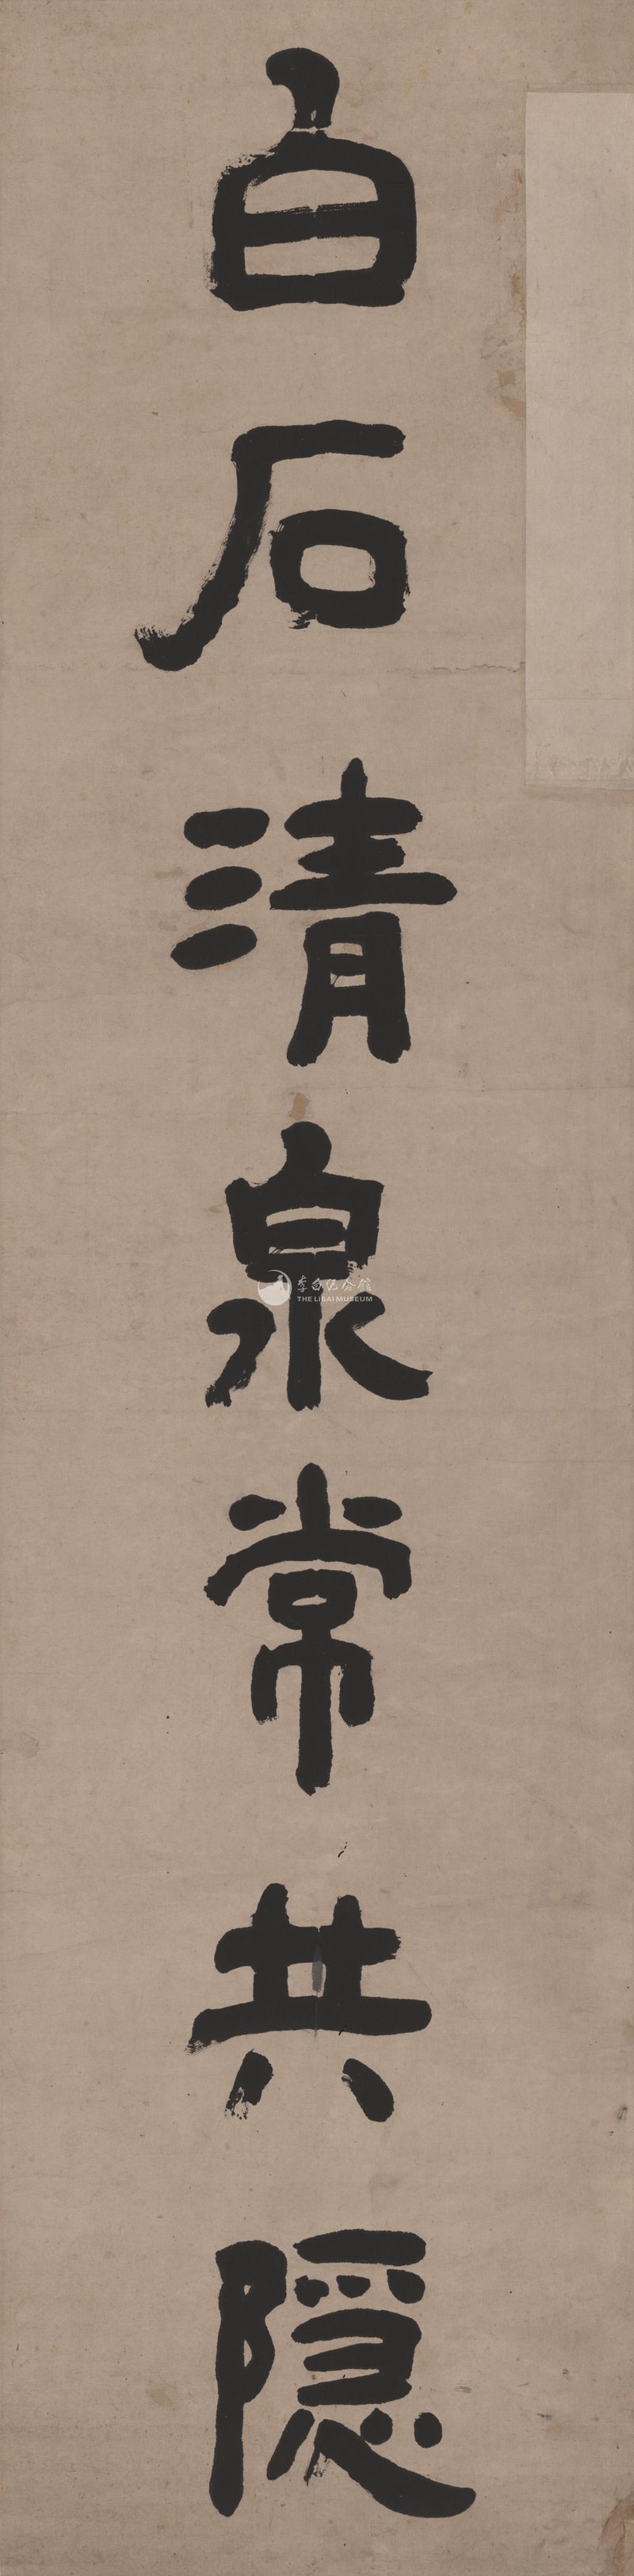 白石清泉常共隱
李白纪念馆
THE LIBAI MUSEUM